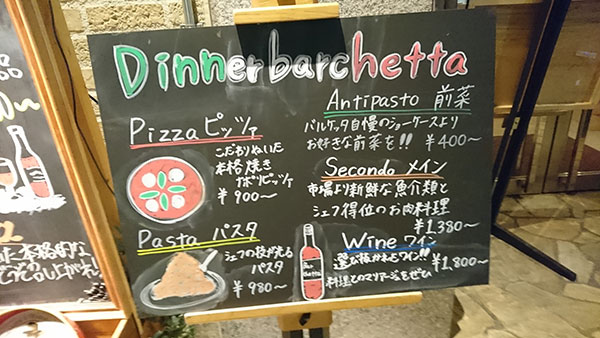 Dinner barchetta
Pizza ピッツァ
こだわりぬいた
本格焼き
ナポリピッツァ
¥900〜
Pasta パスタ
シェフの技が光る
パスタ
¥980〜
Antipasto 前菜
バルケッタ自慢のショーケースより
お好きな前菜を!!
¥400〜
Secondo メイン
市場より新鮮な魚介類と
シェフ得位のお肉料理
¥1,380〜
Wine ワイン
選び抜かれたワイン!!
¥1,800〜
料理とのマリアージュをぜひ